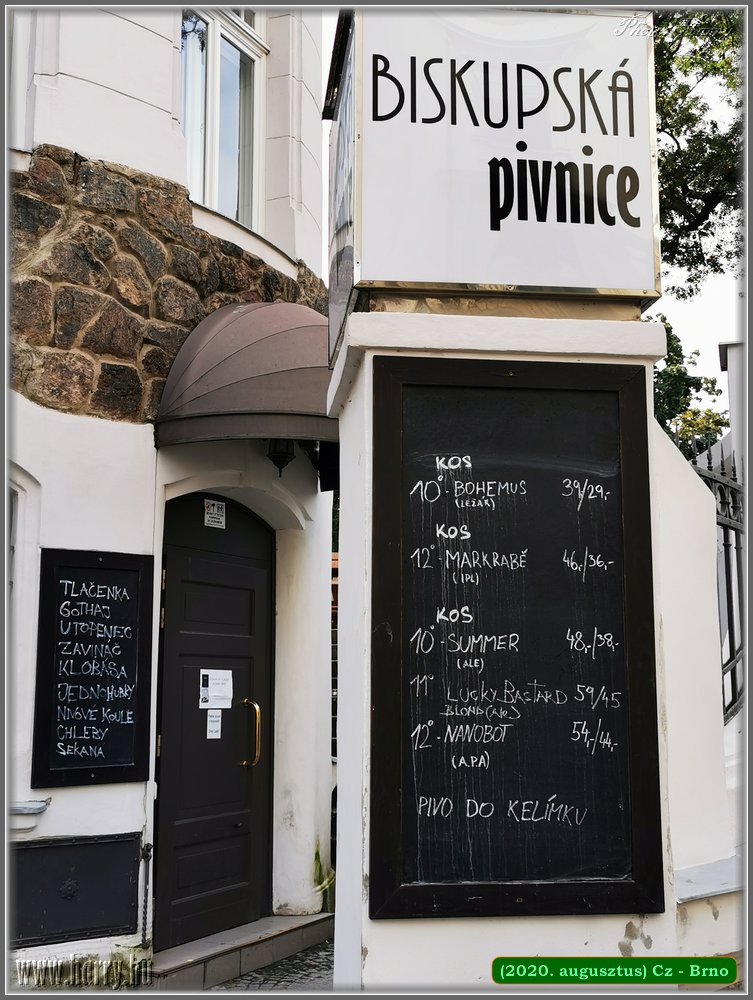 BISKUPSKÁ
pivnice
KOS
10° - BOHEMUS 39/29,-
(LEŽÁK)
KOS
12° - MARKRABĚ 46,-/36,-
(IPL)
KOS
10° - SUMMER 48,-/38,-
(ALE)
11° LUCKY BASTARD 59/45
BLOND (ALE)
12° - NANOBOT 54,-/44,-
(A.P.A)
PIVO DO KELÍMKU
TLAČENKA
GOTHAJ
UTOPENEC
ZAVINÁČ
KLOBÁSA
JEDNOHUBKY
NIVOVÉ KOULE
CHLEBY
SEKANÁ
www.horry.hu
(2020. augusztus) Cz - Brno